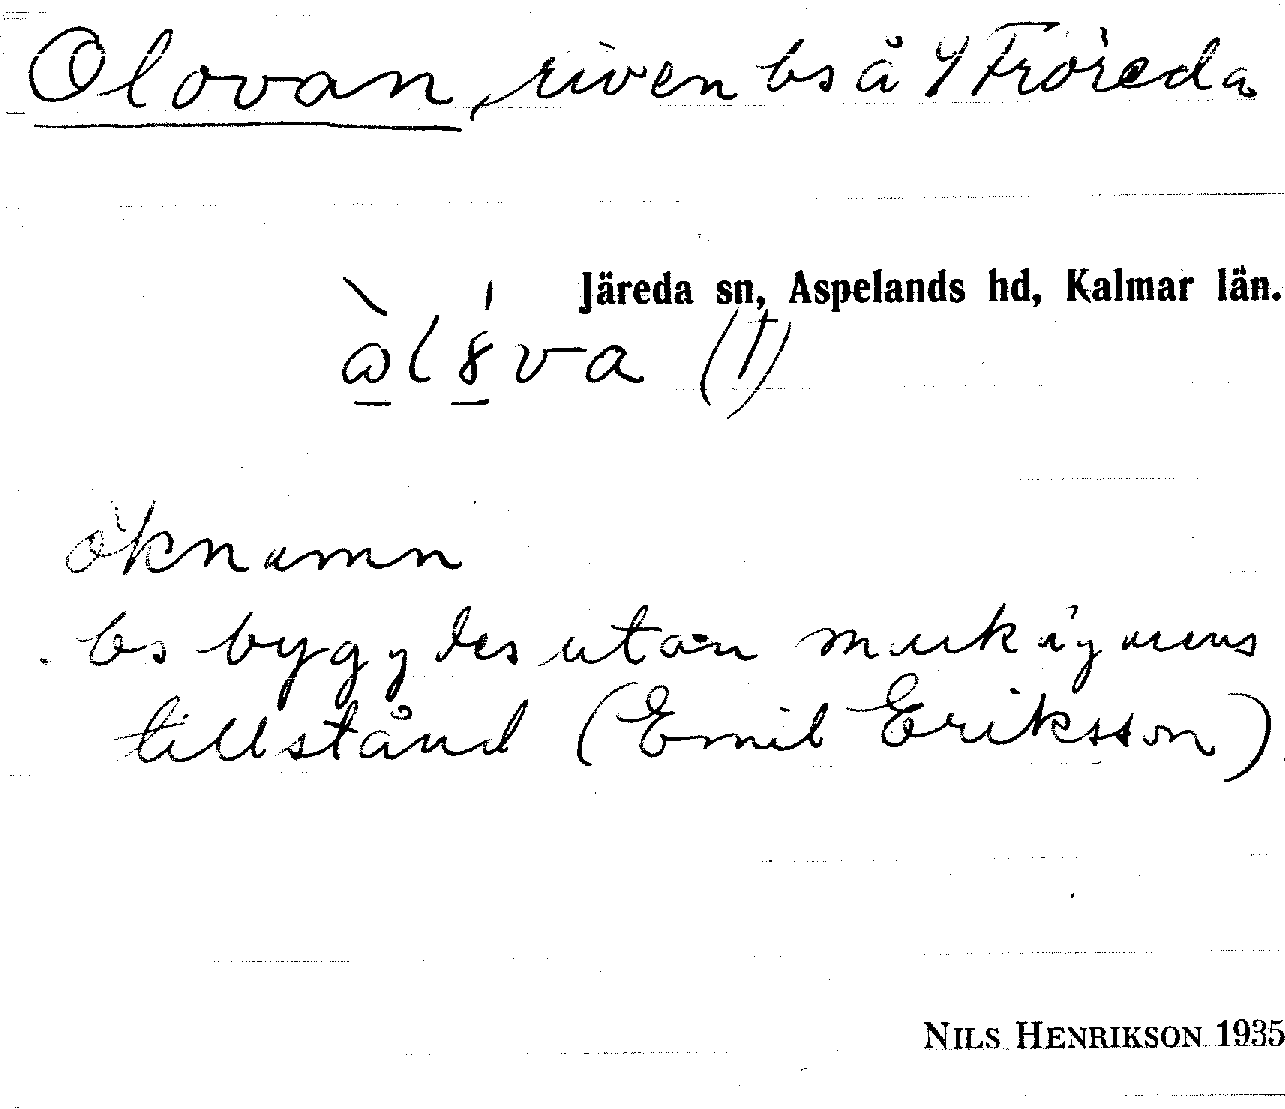 Olovan, riven bs å Y Fröreda
Järeda sn, Aspelands hd, Kalmar län.
(†)
öknamn
bs byggdes utan markägarens
tillstånd (Emil Eriksson)
NILS HENRIKSON 1935